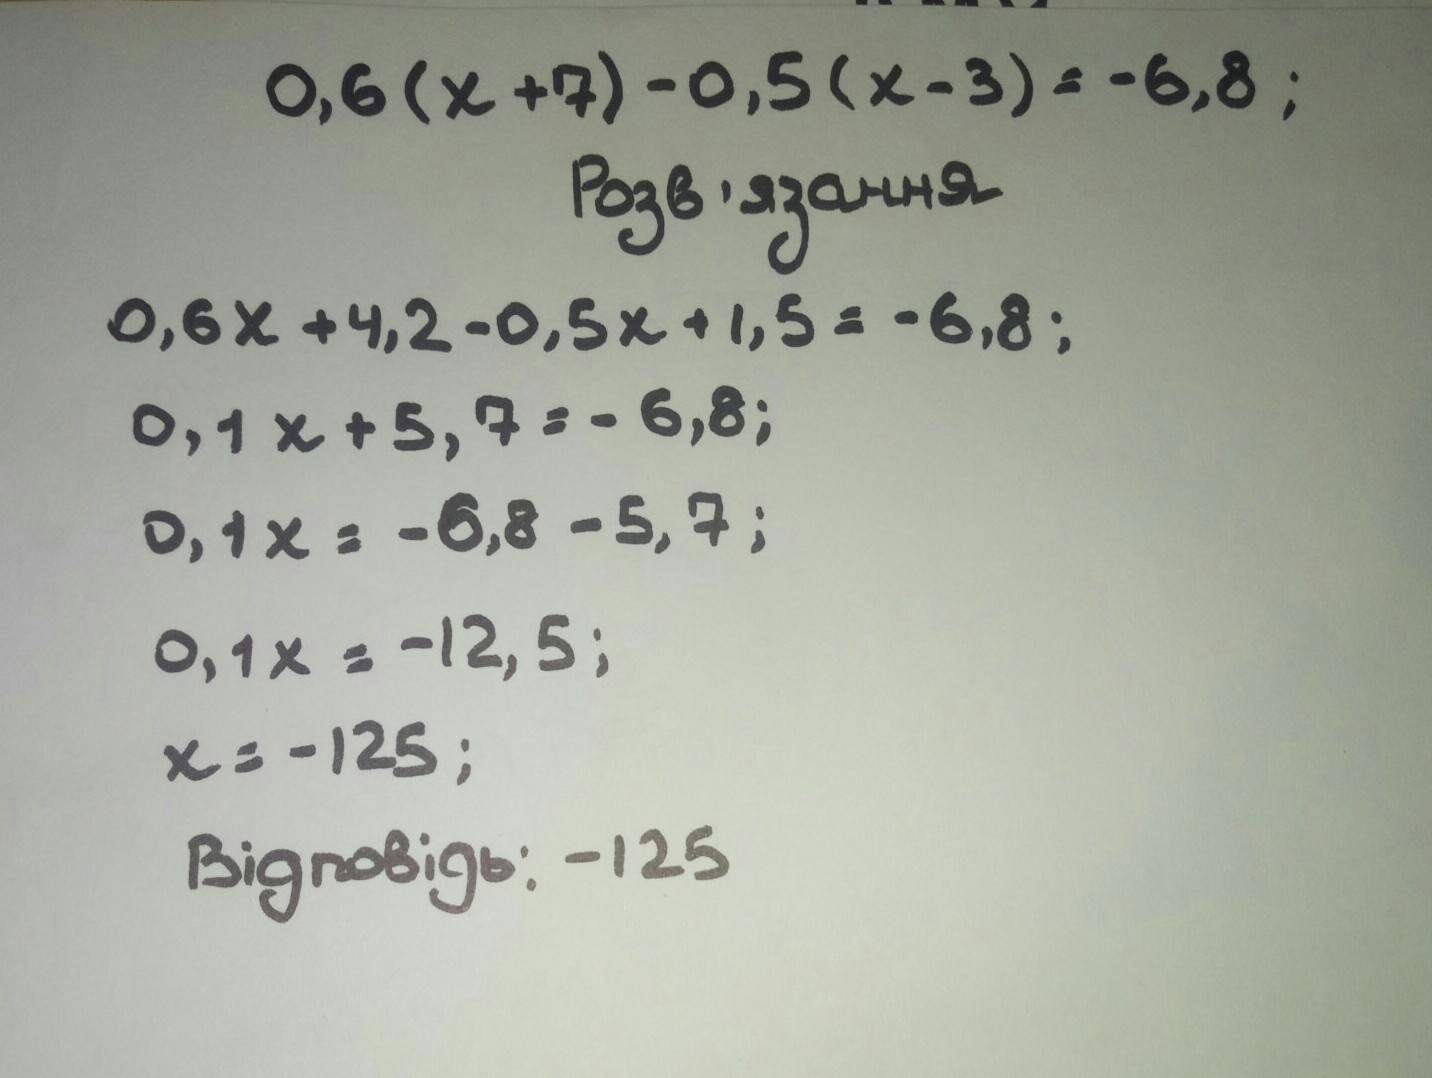 0,6(x+7)-0,5(x-3)=-6,8;
Розв'язання
0,6x+4,2-0,5x+1,5=-6,8;
0,1x+5,7=-6,8;
0,1x=-6,8-5,7;
0,1x=-12,5;
x=-125;
Відповідь: -125